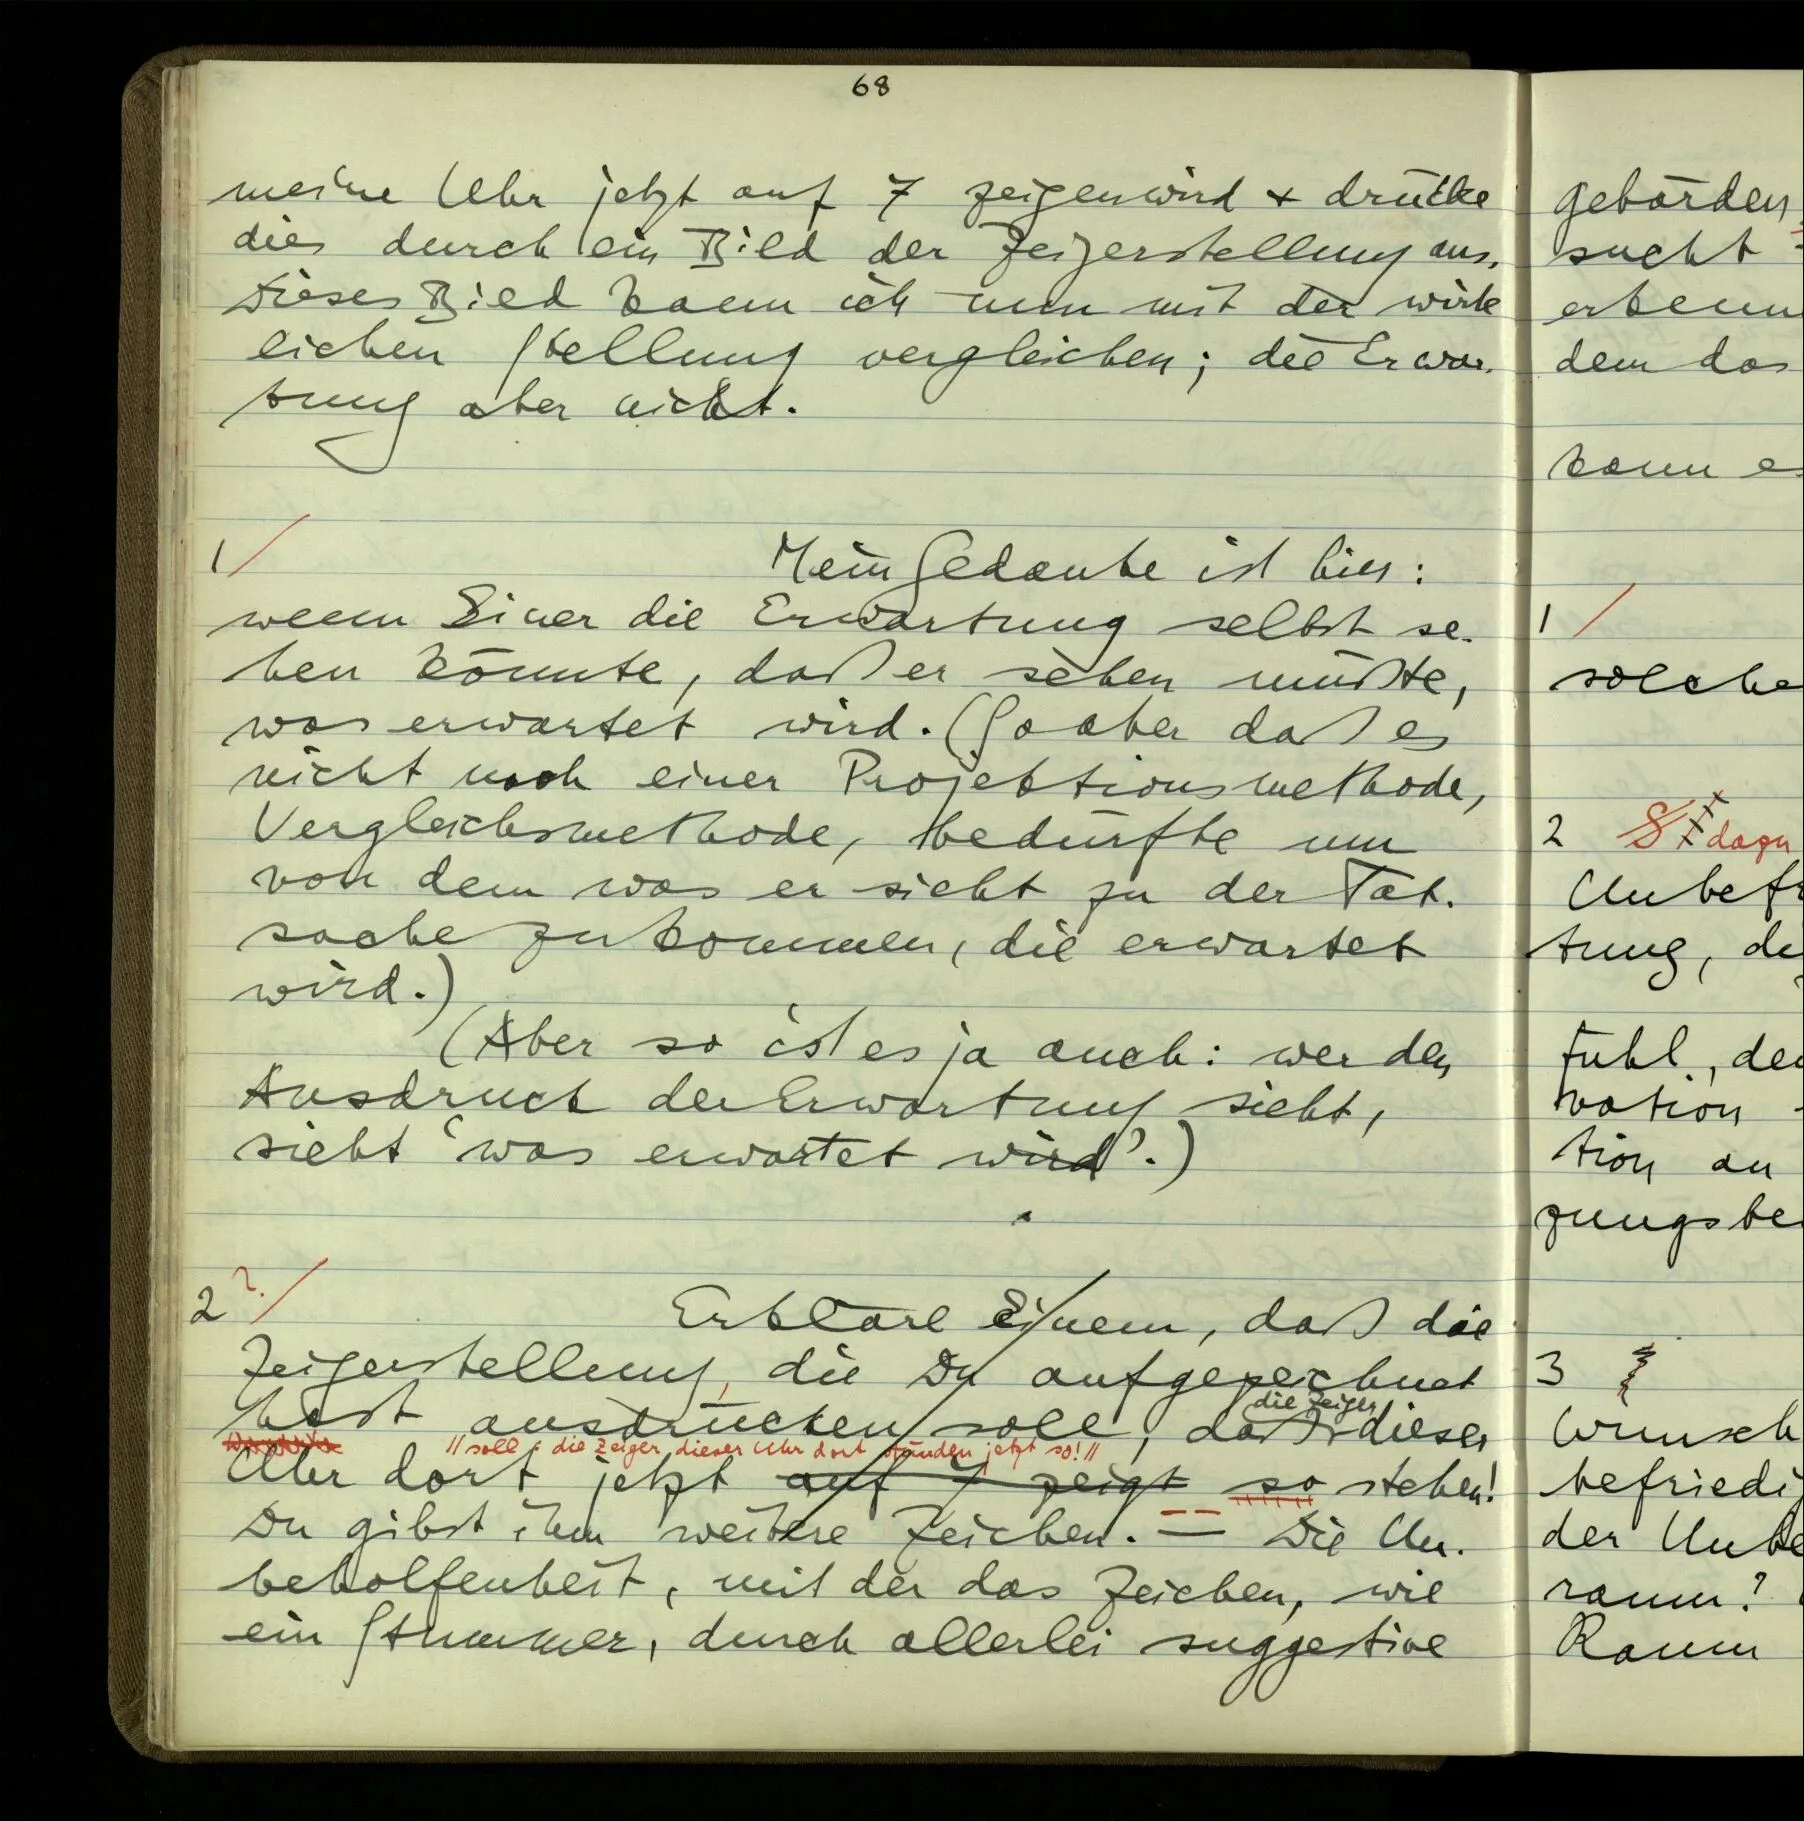 68
meine Uhr jetzt auf 7 zeigen wird + drücke
dies durch ein Bild der Zeigerstellung aus.
Dieses Bild kann ich nun mit der wirk
lichen Stellung vergleichen; die Erwar-
tung aber nicht.
1/
Mein Gedanke ist hier:
wenn Einer die Erwartung selbst se-
hen könnte, daß er sehen müßte,
was erwartet wird. (So aber daß es
nicht noch einer Projektionsmethode,
Vergleichsmethode, bedürfte um
von dem was er sieht zu der Tat-
sache zu kommen, die erwartet
wird.)
(Aber so ist es ja auch: wer den
Ausdruck der Erwartung sieht,
sieht ‘was erwartet wird’.)
2 ? /
Erkläre Einem, daß die
Zeigerstellung, die Du aufgezeichnet
hast ausdrücken soll, daß die Zeiger dieser
// soll: die Zeiger dieser Uhr dort stünden jetzt so! //
Uhr dort jetzt auf 7 zeigt so stehen!
Du gibst ihm weitere Zeichen. — Die Un-
beholfenheit, mit der das Zeichen, wie
ein Stummer, durch allerlei suggestive
gebärden
sucht
dem das
kann es
1 /
solche
2 dazu
tung,
vation
tion an
3
Wunsch
der
raum?
Raum